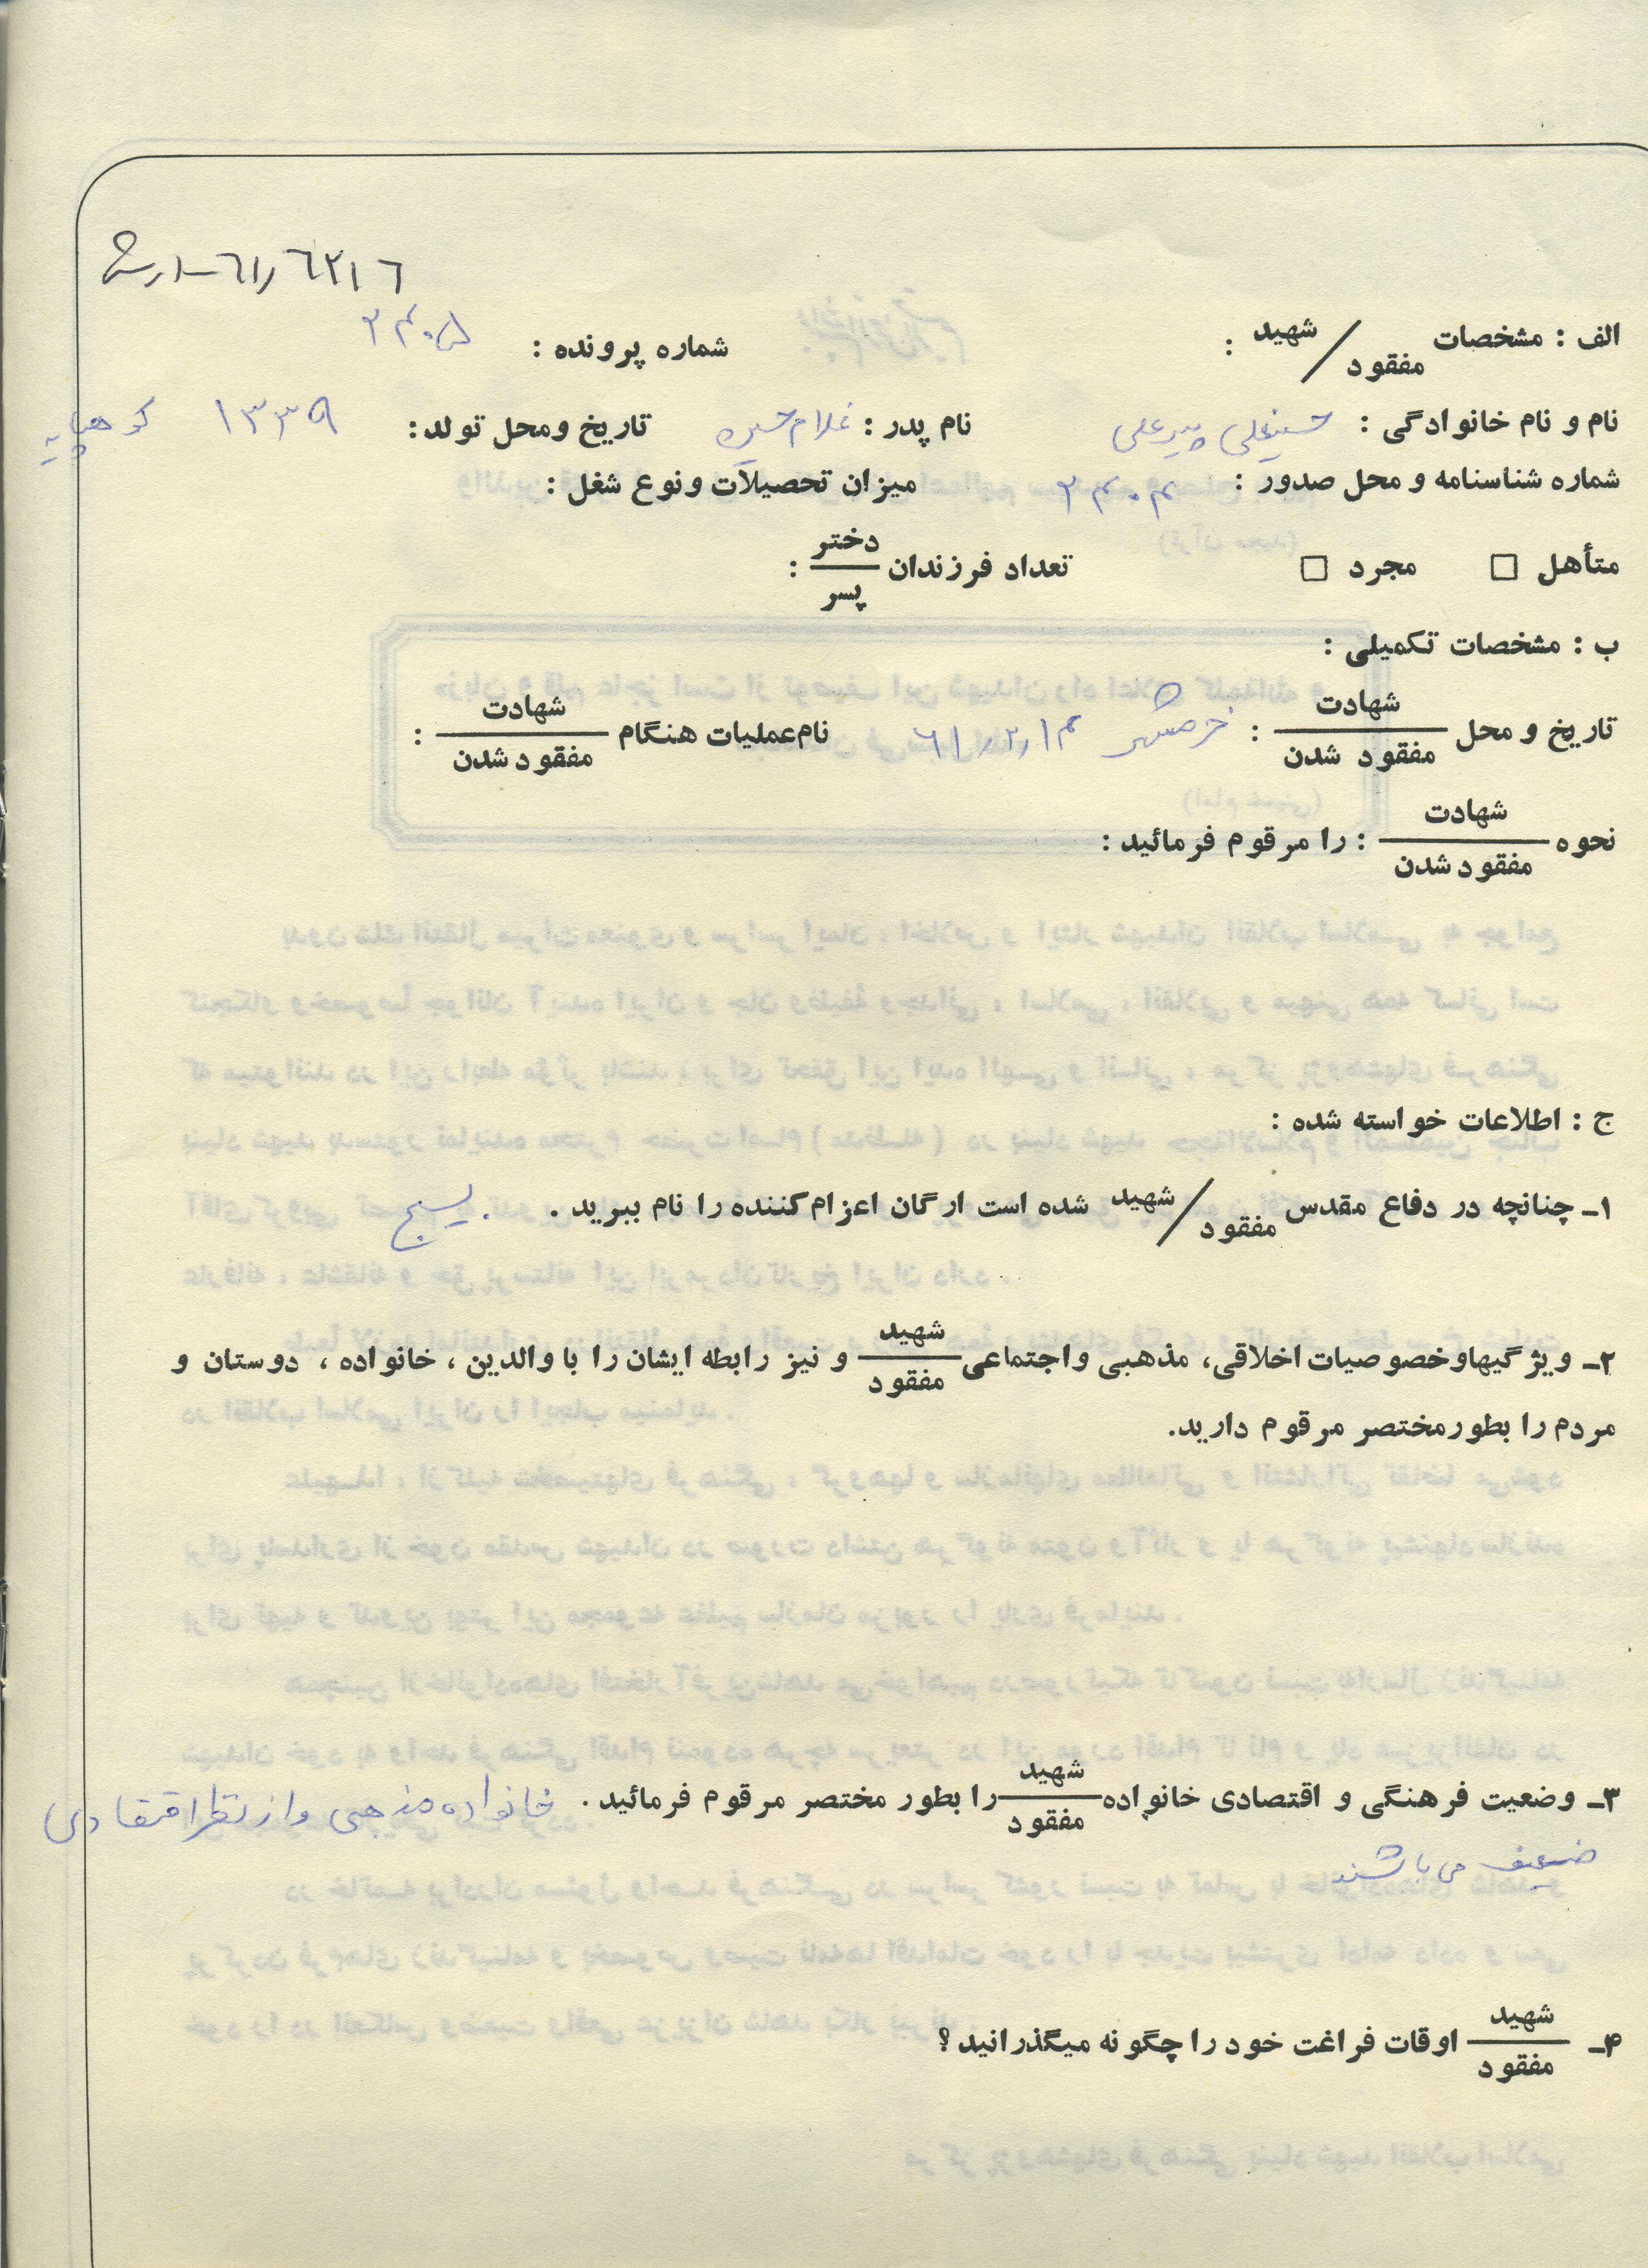 الف : مشخصات شهید / مفقود :
شماره پرونده :
نام و نام خانوادگی : حسینعلی پیرعلی نام پدر : غلامحسین تاریخ ومحل تولد: ۱۳۳۹ کوهپایه
شماره شناسنامه و محل صدور : میزان تحصیلات ونوع شغل :
متأهل □ مجرد □ تعداد فرزندان دختر / پسر :
ب : مشخصات تکمیلی :
تاریخ و محل شهادت / مفقود شدن : خرمشهر ۶۱/۲/۱۴ نام عملیات هنگام شهادت / مفقود شدن :
نحوه شهادت / مفقود شدن : را مرقوم فرمائید :
ج : اطلاعات خواسته شده :
۱ـ چنانچه در دفاع مقدس شهید / مفقود شده است ارگان اعزام کننده را نام ببرید . بسیج
۲ـ ویژگیها وخصوصیات اخلاقی، مذهبی واجتماعی شهید / مفقود و نیز رابطه ایشان را با والدین ، خانواده ، دوستان و
مردم را بطور مختصر مرقوم دارید.
۳ـ وضعیت فرهنگی و اقتصادی خانواده شهید / مفقود را بطور مختصر مرقوم فرمائید . خانواده مذهبی و از نظر اقتصادی
ضعیف می باشند
۴ـ شهید / مفقود اوقات فراغت خود را چگونه میگذرانید ؟